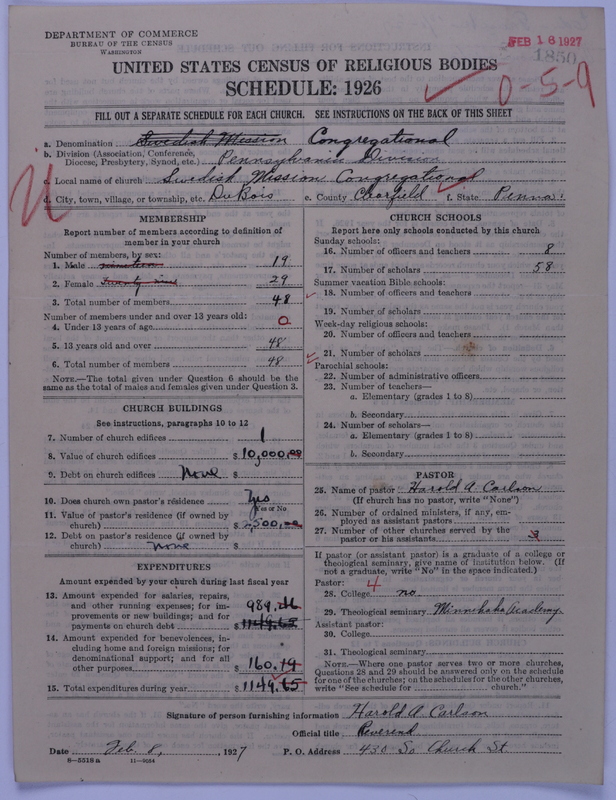 DEPARTMENT OF COMMERCE
BUREAU OF THE CENSUS
WASHINGTON
FEB 16 1927
1850
0-5-9
UNITED STATES CENSUS OF RELIGIOUS BODIES
SCHEDULE: 1926
FILL OUT A SEPARATE SCHEDULE FOR EACH CHURCH. SEE INSTRUCTIONS ON THE BACK OF THIS SHEET
a. Denomination Swedish Mission Congregational
b. Division (Association, Conference, Diocese, Presbytery, Synod, etc.) Pennsylvania Division
c. Local name of church Swedish Mission Congregational
d. City, town, village, or township, etc. DuBois e. County Clearfield f. State Penna.
MEMBERSHIP
Report number of members according to definition of member in your church
Number of members, by sex:
1. Male nineteen 19
2. Female twenty nine 29
3. Total number of members 48
Number of members under and over 13 years old:
4. Under 13 years of age 0
5. 13 years old and over 48
6. Total number of members 48
NOTE.—The total given under Question 6 should be the same as the total of males and females given under Question 3.
CHURCH BUILDINGS
See instructions, paragraphs 10 to 12
7. Number of church edifices 1
8. Value of church edifices $10,000.00
9. Debt on church edifices None $
10. Does church own pastor's residence Yes
Yes or No
11. Value of pastor's residence (if owned by church) $
12. Debt on pastor's residence (if owned by church) none $
EXPENDITURES
Amount expended by your church during last fiscal year
13. Amount expended for salaries, repairs, and other running expenses; for improvements or new buildings; and for payments on church debt 989.46
$1149.65
14. Amount expended for benevolences, including home and foreign missions; for denominational support; and for all other purposes $160.19
15. Total expenditures during year $1149.65
CHURCH SCHOOLS
Report here only schools conducted by this church
Sunday schools:
16. Number of officers and teachers 8
17. Number of scholars 58
Summer vacation Bible schools:
18. Number of officers and teachers
19. Number of scholars
Week-day religious schools:
20. Number of officers and teachers
21. Number of scholars
Parochial schools:
22. Number of administrative officers
23. Number of teachers—
a. Elementary (grades 1 to 8)
b. Secondary
24. Number of scholars—
a. Elementary (grades 1 to 8)
b. Secondary
PASTOR
25. Name of pastor Harold A. Carlson
(If church has no pastor, write "None")
26. Number of ordained ministers, if any, employed as assistant pastors
27. Number of other churches served by the pastor or his assistants
If pastor (or assistant pastor) is a graduate of a college or theological seminary, give name of institution below. (If not a graduate, write "No" in the space indicated.)
Pastor: 4
28. College no
29. Theological seminary Minnehaha Academy
Assistant pastor:
30. College
31. Theological seminary
NOTE.—Where one pastor serves two or more churches, Questions 28 and 29 should be answered only on the schedule for one of the churches; on the schedules for the other churches, write "See schedule for church."
Signature of person furnishing information Harold A. Carlson
Official title Reverend
Date Feb. 8, 1927 P. O. Address 430 So Church St.
8-5518 a 11-5064